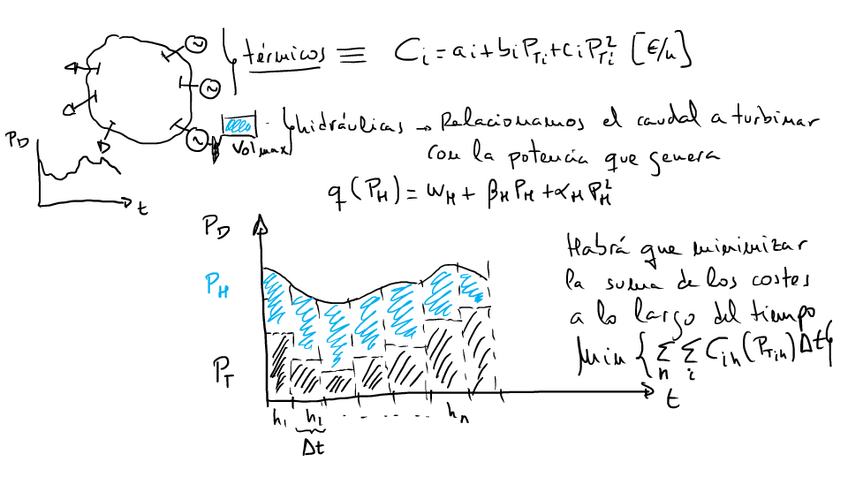 térmicos ≡ Ci = ai + bi PTi + ci PTi² [€/h]
PD
t
Vol max
hidráulicas → Relacionamos el caudal a turbinar
con la potencia que genera
q(PH) = WH + βH PH + αH PH²
PD
PH
PT
h1 h2 ........ hn
Δt
t
Habrá que minimizar
la suma de los costes
a lo largo del tiempo
Min { Σn Σi Cin (PTin) Δt }